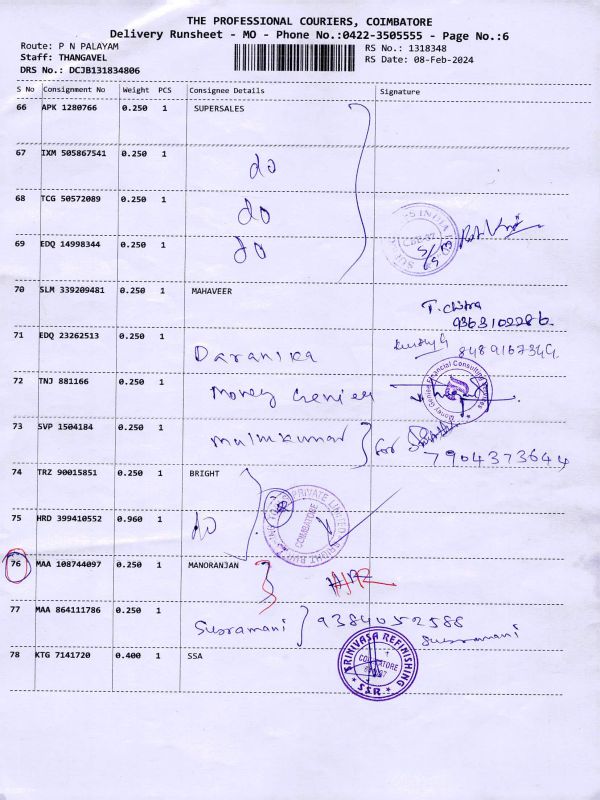 THE PROFESSIONAL COURIERS, COIMBATORE
Delivery Runsheet - MO - Phone No.:0422-3505555 - Page No.:6
Route: P N PALAYAM
RS No.: 1318348
Staff: THANGAVEL
RS Date: 08-Feb-2024
DRS No.: DCJB131834806
S No Consignment No Weight PCS Consignee Details Signature
66 APK 1280766 0.250 1 SUPERSALES
67 IXM 505867541 0.250 1 do
68 TCG 50572089 0.250 1 do
69 EDQ 14998344 0.250 1 do
70 SLM 339209481 0.250 1 MAHAVEER
T. Chitra
9363102286.
71 EDQ 23262513 0.250 1 Daranika
72 TNJ 881166 0.250 1 Money Geniey
Money Geniee Financial Consulting Services
73 SVP 1504184 0.250 1 for
7904373644
74 TRZ 90015851 0.250 1 BRIGHT
75 HRD 399410552 0.960 1 do
PRIVATE LIMITED
COIMBATORE
76 MAA 108744097 0.250 1 MANORANJAN
77 MAA 864111786 0.250 1 Susramani 9384052588
Susramani
78 KTG 7141720 0.400 1 SSA
SRINIVASA REFINISHING
COIMBATORE
S.S.R